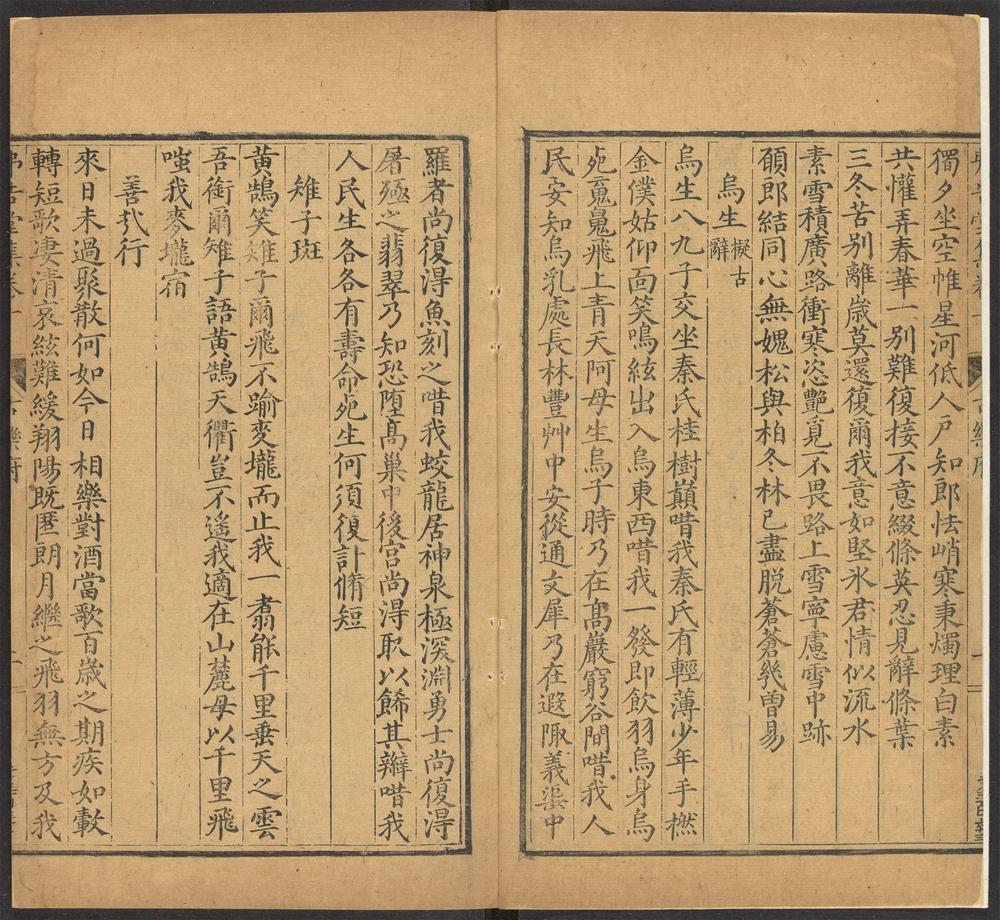 獨夕坐空帷星河低人戶知郎怯峭寒秉燭理白素
共懽弄春華一別難復接不意綴條英忍見辭條葉
三冬苦別離歲莫還復爾我意如堅冰君情似流水
素雪積廣路衝寒恣艷覓不畏路上雪寧慮雪中跡
願郎結同心無媿松與柏冬林已盡脫蒼蒼幾曾易
烏生擬古辭
烏生八九子交坐秦氏桂樹巔唶我秦氏有輕薄少年手橪
金僕姑仰面笑鳴絃出入烏東西唶我一發即飲羽烏身烏
死䰟鬼飛上青天阿母生烏子時乃在高巖窮谷間唶我人
民安知烏乳處長林豐艸中安從通文犀乃在遐陬義渠中
羅者尚復得魚刻之唶我蛟龍居神泉極深淵勇士尚復得
屠殛之翡翠乃知恐墮高巢中後宮尚得取以餙其辮唶我
人民生各各有壽命死生何須復計脩短
雉子斑
黃鵠笑雉子爾飛不踰麥壠而止我一翥能千里垂天之雲
吾銜爾雉子語黃鵠天衢豈不遙我適在山麓毋以千里飛
嗤我麥壠宿
善哉行
來日未過聚散何如今日相樂對酒當歌百歲之期疾如轂
轉短歌凄清哀絃難緩翔陽既匿朗月繼之飛羽無方及我